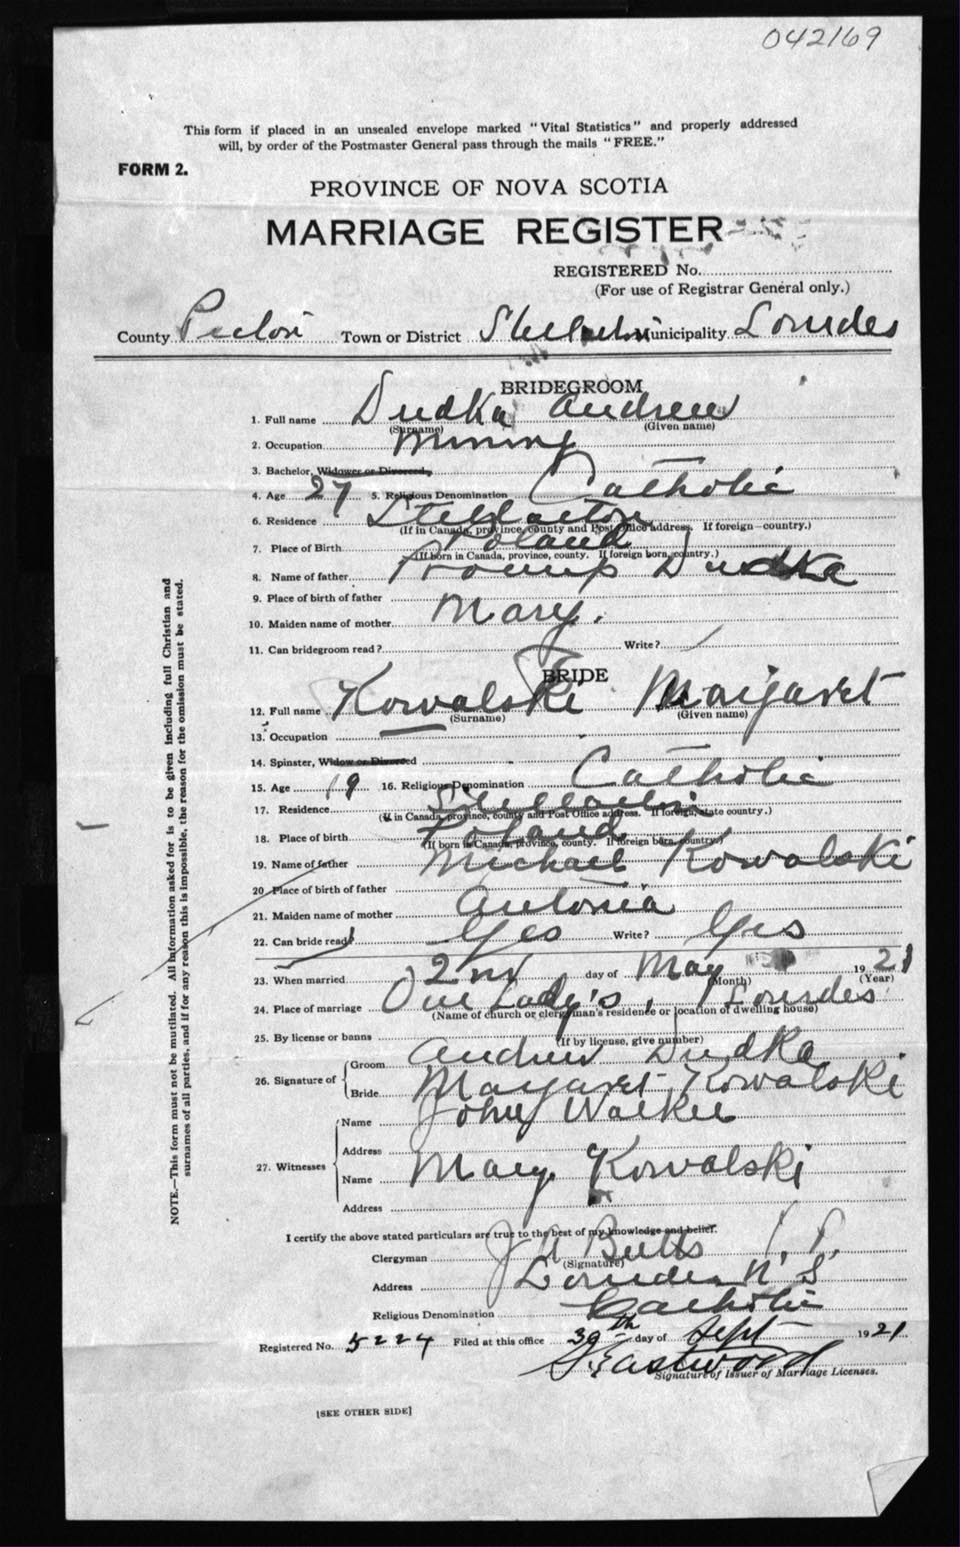 042169
This form if placed in an unsealed envelope marked "Vital Statistics" and properly addressed
will, by order of the Postmaster General pass through the mails "FREE."
FORM 2.
PROVINCE OF NOVA SCOTIA
MARRIAGE REGISTER
REGISTERED No.
(For use of Registrar General only.)
County Pictou Town or District Stellarton Municipality Lourdes
BRIDEGROOM
1. Full name Dudka Andrew
(Surname) (Given name)
2. Occupation Mining
3. Bachelor, Widower or Divorced,
4. Age 27 5. Religious Denomination Catholic
6. Residence Stellarton
(If in Canada, province, county and Post Office address. If foreign country.)
7. Place of Birth Poland
(If born in Canada, province, county. If foreign born, country.)
8. Name of father Dudka
9. Place of birth of father
10. Maiden name of mother Mary.
11. Can bridegroom read? Write?
BRIDE
12. Full name Kowalski Margaret
(Surname) (Given name)
13. Occupation
14. Spinster, Widow or Divorced
15. Age 19 16. Religious Denomination Catholic
17. Residence Stellarton
(If in Canada, province, county and Post Office address. If foreign, state country.)
18. Place of birth Poland
(If born in Canada, province, county. If foreign born, country.)
19. Name of father Michael Kowalski
20. Place of birth of father
21. Maiden name of mother Antonia
22. Can bride read? Yes Write? Yes
23. When married 2nd day of May 1921
(Month) (Year)
24. Place of marriage Our Lady's, Lourdes
(Name of church or clergyman's residence or location of dwelling house)
25. By license or banns
(If by license, give number)
26. Signature of Groom Andrew Dudka
Bride Margaret Kowalski
27. Witnesses Name John Walker
Address
Name Mary Kowalski
Address
I certify the above stated particulars are true to the best of my knowledge and belief.
Clergyman Butts P.P.
(Signature)
Address Lourdes N S
Religious Denomination Catholic
Registered No. 5224 Filed at this office 30th day of Sept 1921
Eastwood
Signature of Issuer of Marriage Licenses.
[SEE OTHER SIDE]
NOTE.—This form must not be mutilated. All information asked for is to be given including full Christian and
surnames of all parties, and if for any reason this is impossible, the reason for the omission must be stated.